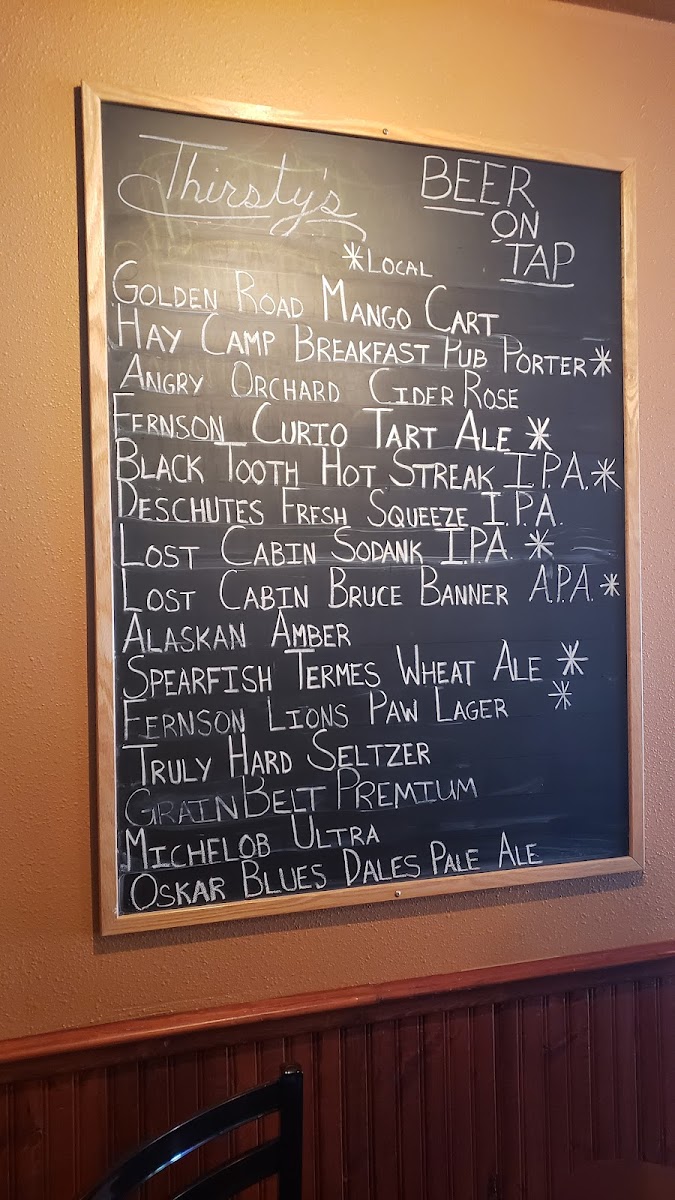 Thirsty's
BEER
ON
TAP
*LOCAL
GOLDEN ROAD MANGO CART
HAY CAMP BREAKFAST PUB PORTER*
ANGRY ORCHARD CIDER ROSE
FERNSON CURIO TART ALE *
BLACK TOOTH HOT STREAK I.P.A.*
DESCHUTES FRESH SQUEEZE I.P.A.
LOST CABIN SODANK I.P.A. *
LOST CABIN BRUCE BANNER A.P.A.*
ALASKAN AMBER
SPEARFISH TERMES WHEAT ALE *
FERNSON LIONS PAW LAGER *
TRULY HARD SELTZER
GRAINBELT PREMIUM
MICHELOB ULTRA
OSKAR BLUES DALES PALE ALE